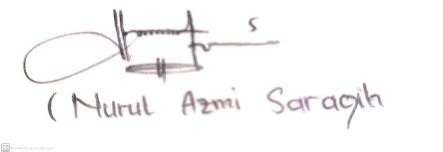 (Nurul Azmi Saragih